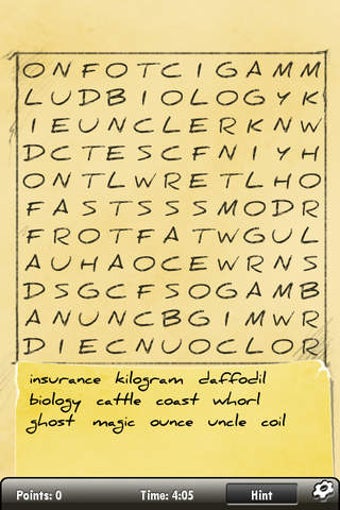 O N F O T C I G A M M
L U D B I O L O G Y K
I E U N C L E R K N W
D C T E S C F N I Y H
O N T L W R E T L H O
F A S T S S S M O D R
F R O T F A T W G U L
A U H A O C E W R N S
D S G C F S O G A M B
A N U N C B G I M W R
D I E C N U O C L O R
insurance kilogram daffodil
biology cattle coast whorl
ghost magic ounce uncle coil
Points: 0 Time: 4:05 Hint